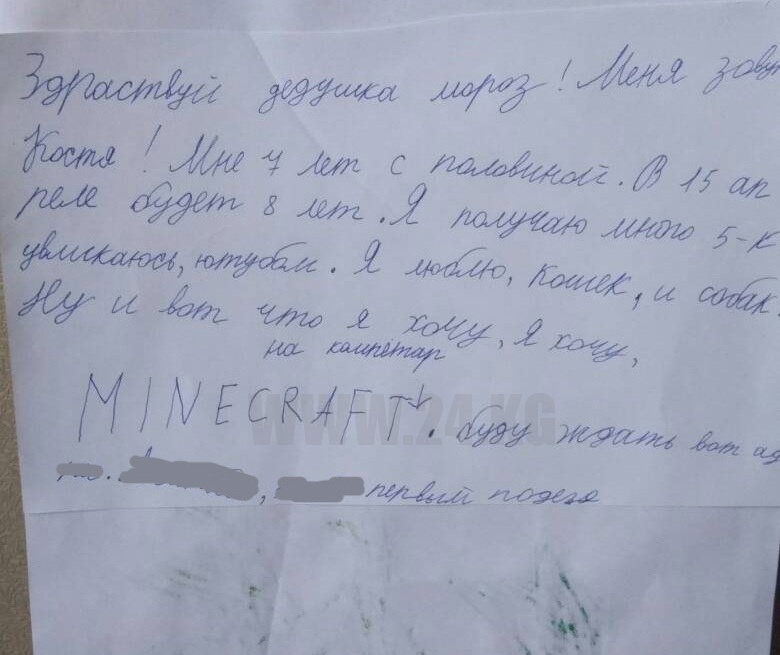 Здраствуй дедушка мороз! Меня зову
Костя! Мне 7 лет с половиной. В 15 ап
реле будет 8 лет. Я получаю много 5-к
увликаюсь, ютубом. Я люблю, кошек, и собак.
Ну и вот что я хочу, я хочу,
на компетар
MINECRAFT. буду ждать вот ад
первый подезд
WWW.24.KG